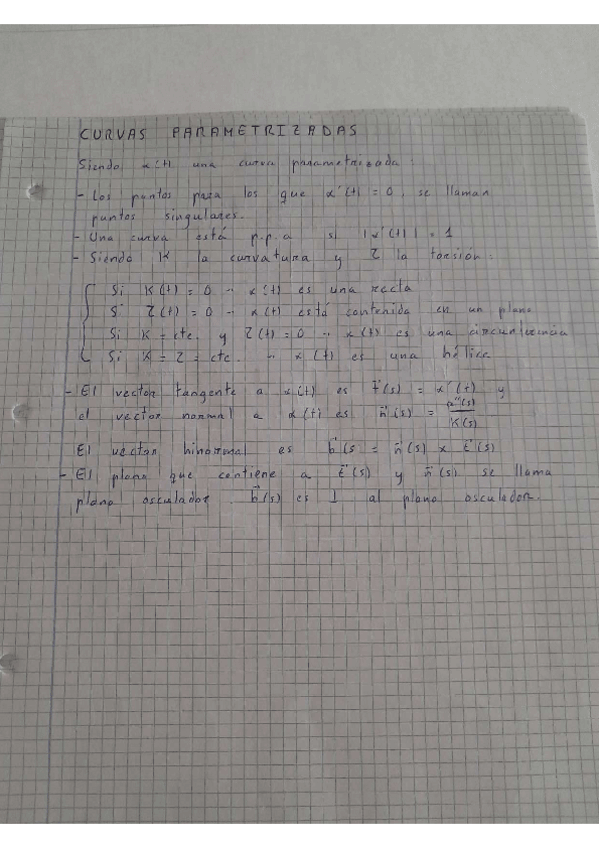 CURVAS PARAMETRIZADAS
Siendo α(t) una curva parametrizada:
- Los puntos para los que α'(t) = 0, se llaman
puntos singulares.
- Una curva está p.p.a si |α'(t)| = 1
- Siendo K la curvatura y τ la torsión:
Si K(t) = 0 → α(t) es una recta
Si τ(t) = 0 → α(t) está contenida en un plano
Si K = cte. y τ(t) = 0 → α(t) es una circunferencia
Si K = τ = cte. → α(t) es una hélice
- El vector tangente a α(t) es t⃗(s) = α'(t) y
el vector normal a α(t) es n⃗(s) = α''(s)/K(s)
El vector binormal es b⃗(s) = n⃗(s) x t⃗(s)
- El plano que contiene a t⃗(s) y n⃗(s) se llama
plano osculador. b⃗(s) es ⊥ al plano osculador.